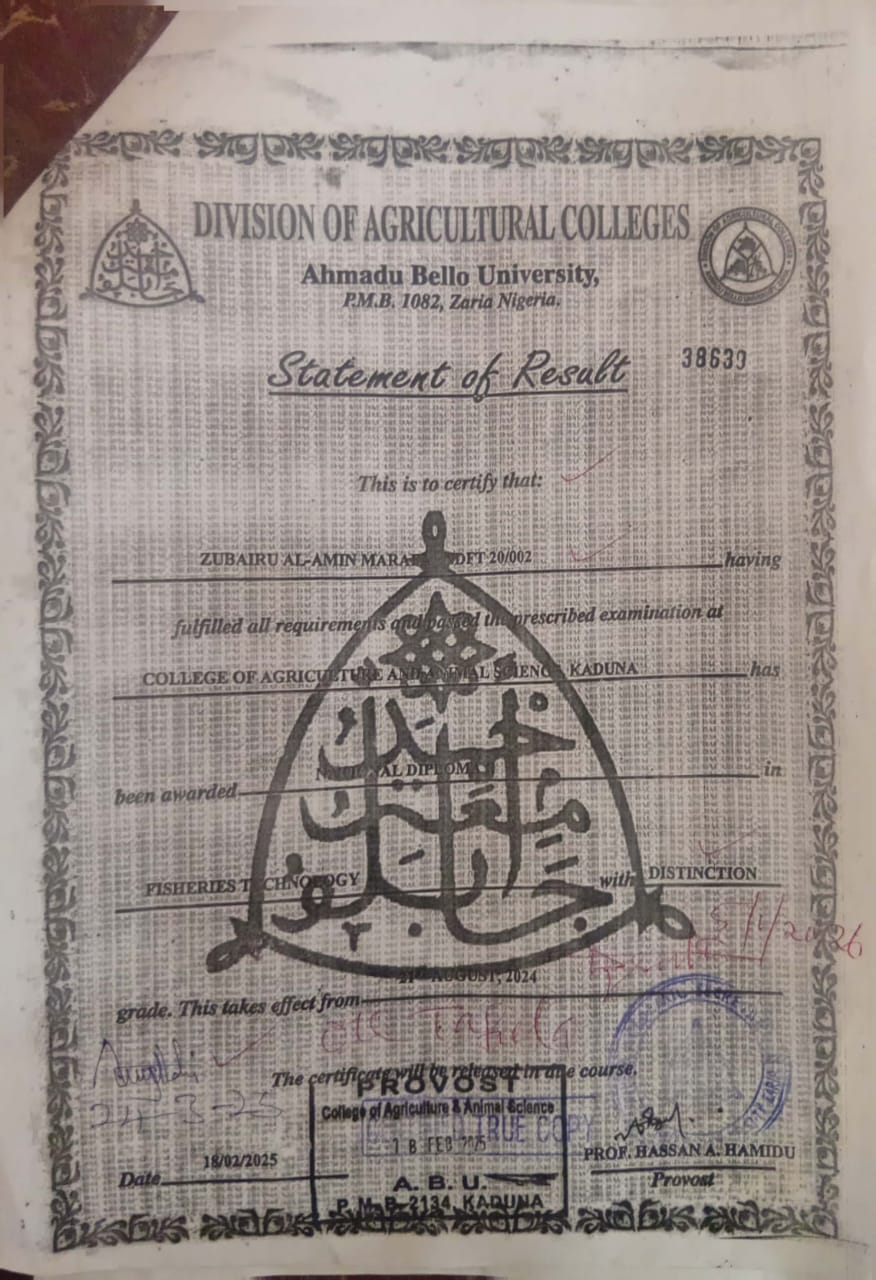 DIVISION OF AGRICULTURAL COLLEGES
Ahmadu Bello University,
P.M.B. 1082, Zaria Nigeria.
Statement of Result
38639
This is to certify that:
ZUBAIRU AL-AMIN DFT 20/002 having
fulfilled all requirements and passed the prescribed examination at
COLLEGE OF AGRICULTURE AND ANIMAL SCIENCE, KADUNA has
been awarded NATIONAL DIPLOMA in
FISHERIES TECHNOLOGY with DISTINCTION
5/1/2026
21st AUGUST, 2024
grade. This takes effect from
The certificate will be released in due course.
24-3-25
PROVOST
College of Agriculture & Animal Science
TRUE COPY
18 FEB 2025
A.B.U.
P.M.B-2134, KADUNA
PROF. HASSAN A. HAMIDU
Provost
Date 18/02/2025